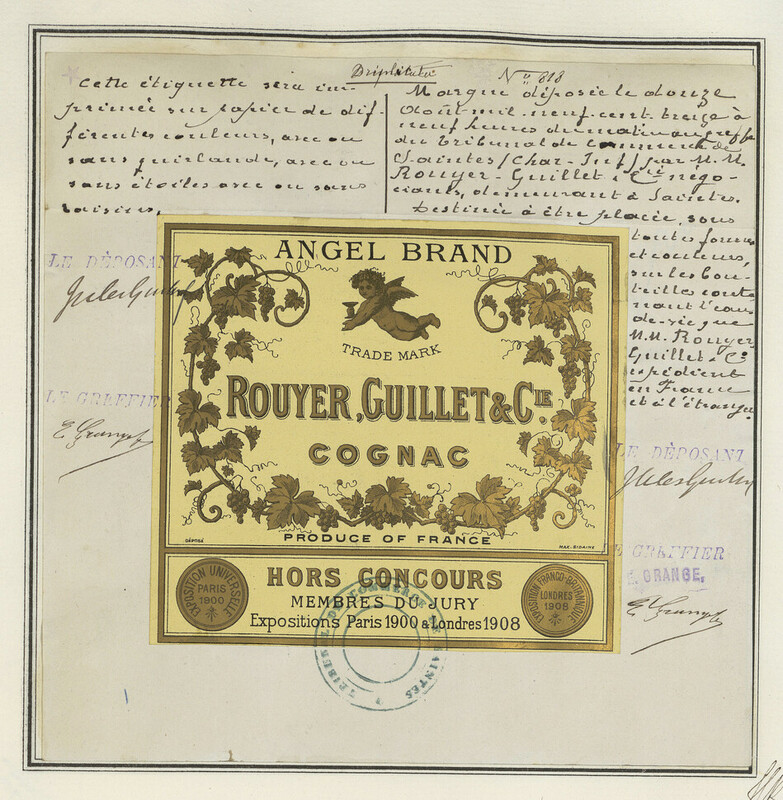 Duplicata
Cette étiquette sera im-
primée sur papier de dif-
férentes couleurs, avec ou
sans guirlande, avec ou
sans étoiles avec ou sans
raisins.
LE DÉPOSANT
Jules Guillet
LE GREFFIER
E. Grange
No 818
Marque déposée le douze
Août mil-neuf-cent-treize à
neuf heures du matin au greffe
du Tribunal de commerce de
Saintes (Char-Inf) par M.M.
Rouyer-Guillet & Cie négo-
ciants, demeurant à Saintes.
Destinée à être placée, sous
toutes formes
et couleurs,
sur les bou-
teilles conte
nant l'eau
de-vie que
M.M. Rouyer
Guillet & Cie
expédient
en France
et à l'étranger.
LE DÉPOSANT
Jules Guillet
LE GREFFIER
E. GRANGE,
E. Grange
ANGEL BRAND
TRADE MARK
ROUYER, GUILLET & CIE
COGNAC
PRODUCE OF FRANCE
DÉPOSÉ
MAX. SIDAINE
EXPOSITION UNIVERSELLE
PARIS
1900
HORS CONCOURS
MEMBRES DU JURY
Expositions Paris 1900 & Londres 1908
EXPOSITION FRANCO-BRITANNIQUE
LONDRES
1908
TRIBUNAL DE COMMERCE DE SAINTES